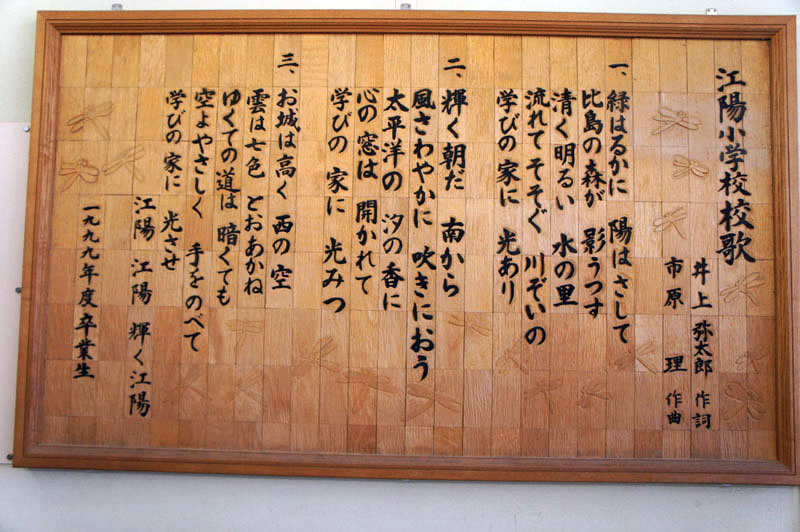 江陽小学校校歌
井上弥太郎 作詞
市原 理 作曲
一、緑はるかに 陽はさして
比島の森が 影うつす
清く明るい 水の里
流れてそそぐ 川ぞいの
学びの家に 光あり
二、輝く朝だ 南から
風さわやかに 吹きにおう
太平洋の 汐の香に
心の窓は 開かれて
学びの家に 光みつ
三、お城は高く 西の空
雲は七色 とおあかね
ゆくての道は 暗くても
空よやさしく 手をのべて
学びの家に 光させ
江陽 江陽 輝く江陽
一九九九年度卒業生